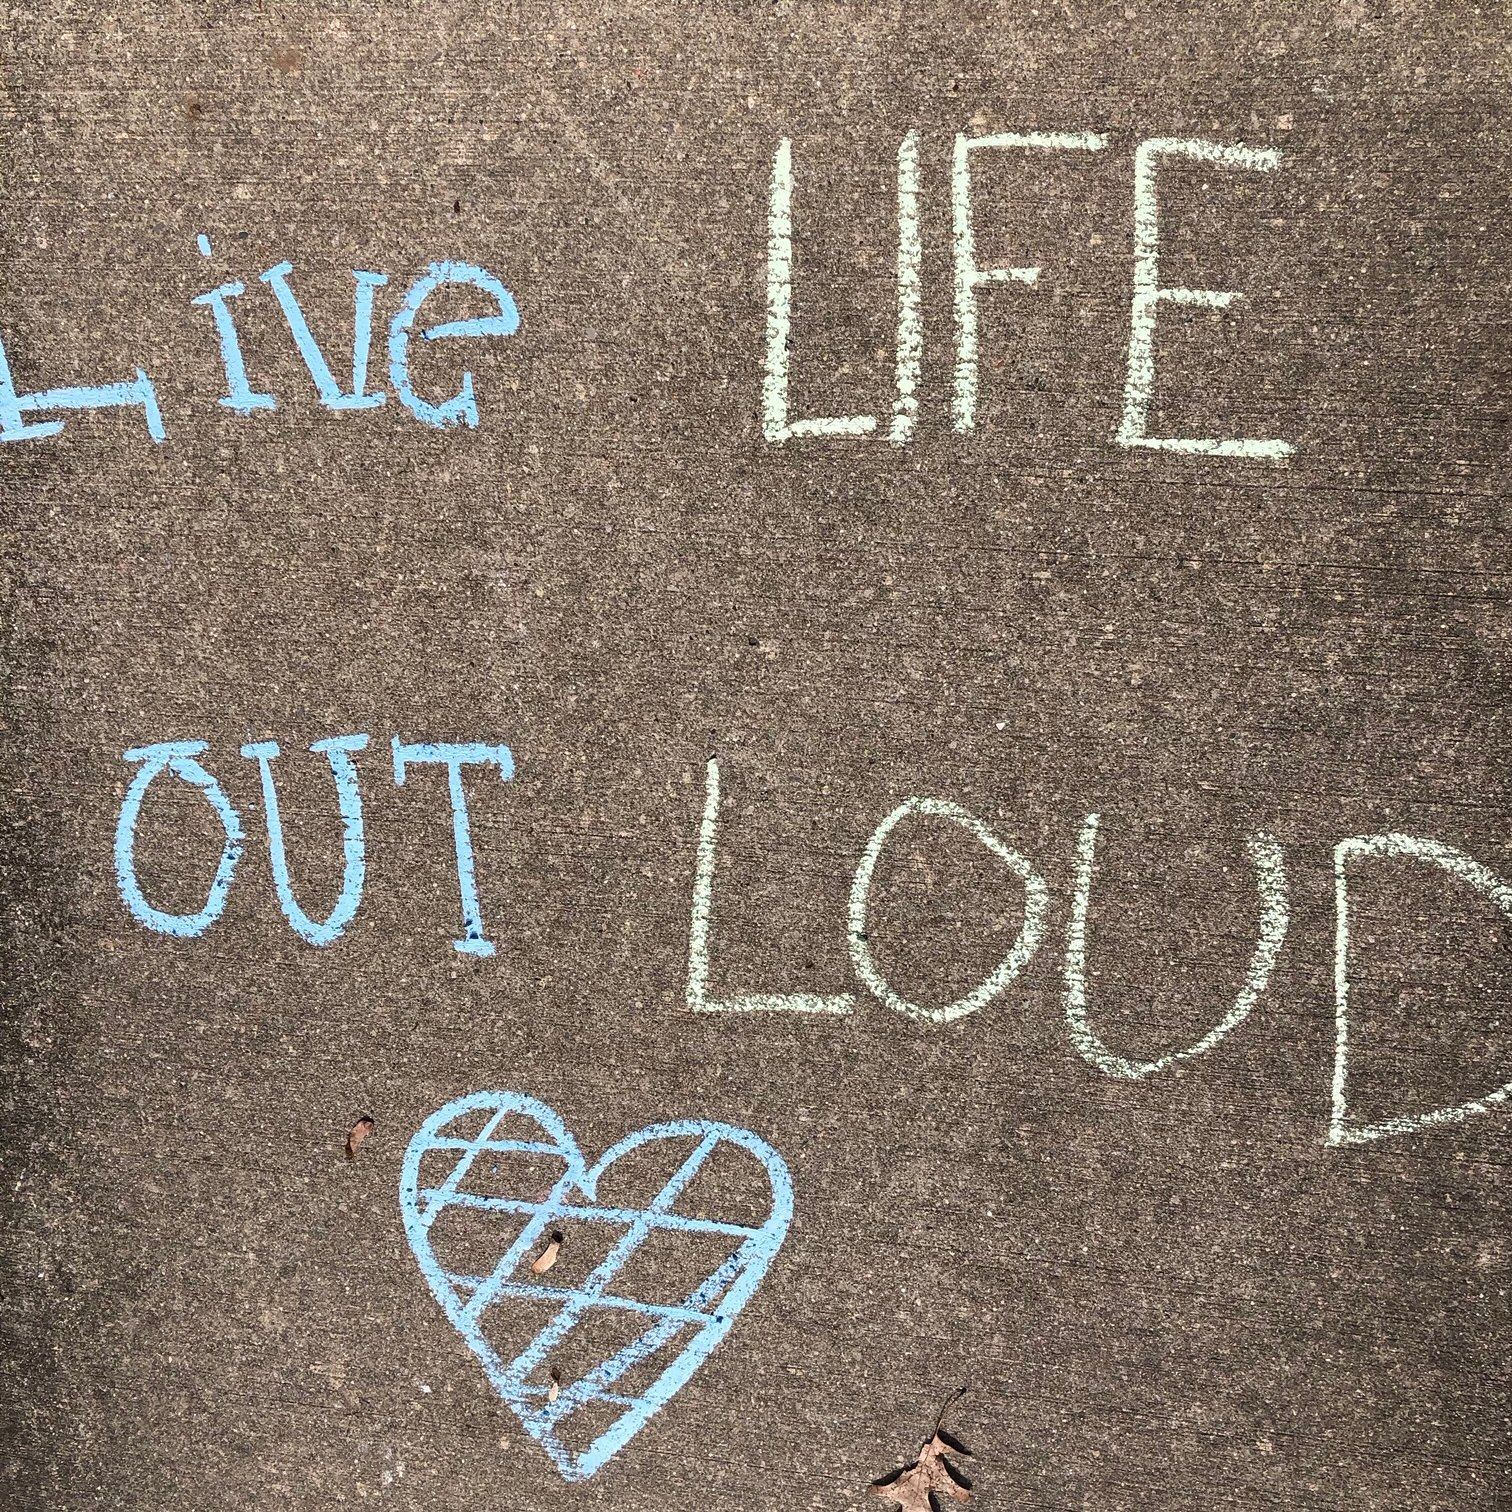 Live LIFE
OUT LOUD